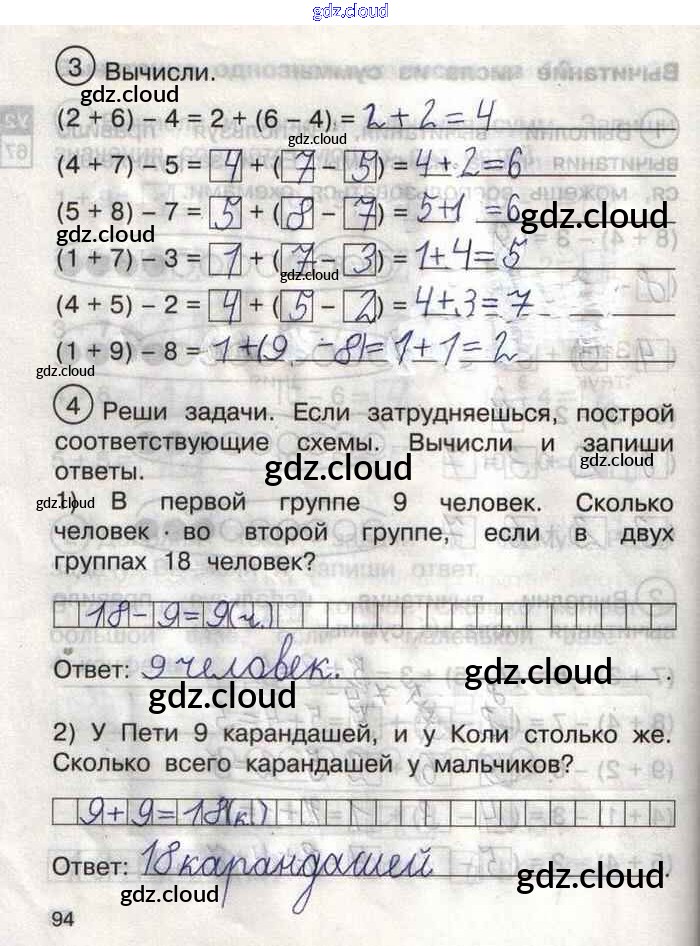 gdz.cloud
3 Вычисли.
gdz.cloud
(2 + 6) – 4 = 2 + (6 – 4) = 2 + 2 = 4
gdz.cloud
(4 + 7) – 5 = 4 + (7 – 5) = 4 + 2 = 6
(5 + 8) – 7 = 5 + (8 – 7) = 5+1 = 6
gdz.cloud
gdz.cloud
(1 + 7) – 3 = 1 + (7 – 3) = 1 + 4 = 5
gdz.cloud
(4 + 5) – 2 = 4 + (5 – 2) = 4 + 3 = 7
(1 + 9) – 8 = 1 + (9 – 8) = 1 + 1 = 2
gdz.cloud
gdz.cloud
4 Реши задачи. Если затрудняешься, построй
соответствующие схемы. Вычисли и запиши
ответы.
gdz.cloud
gdz.cloud
gdz.cloud
1) В первой группе 9 человек. Сколько
человек во второй группе, если в двух
группах 18 человек?
18 – 9 = 9 (ч.)
Ответ: 9 человек.
gdz.cloud
gdz.cloud
2) У Пети 9 карандашей, и у Коли столько же.
Сколько всего карандашей у мальчиков?
9 + 9 = 18 (к.)
gdz.cloud
gdz.cloud
Ответ: 18 карандашей.
gdz.cloud
gdz.cloud
gdz.cloud
94